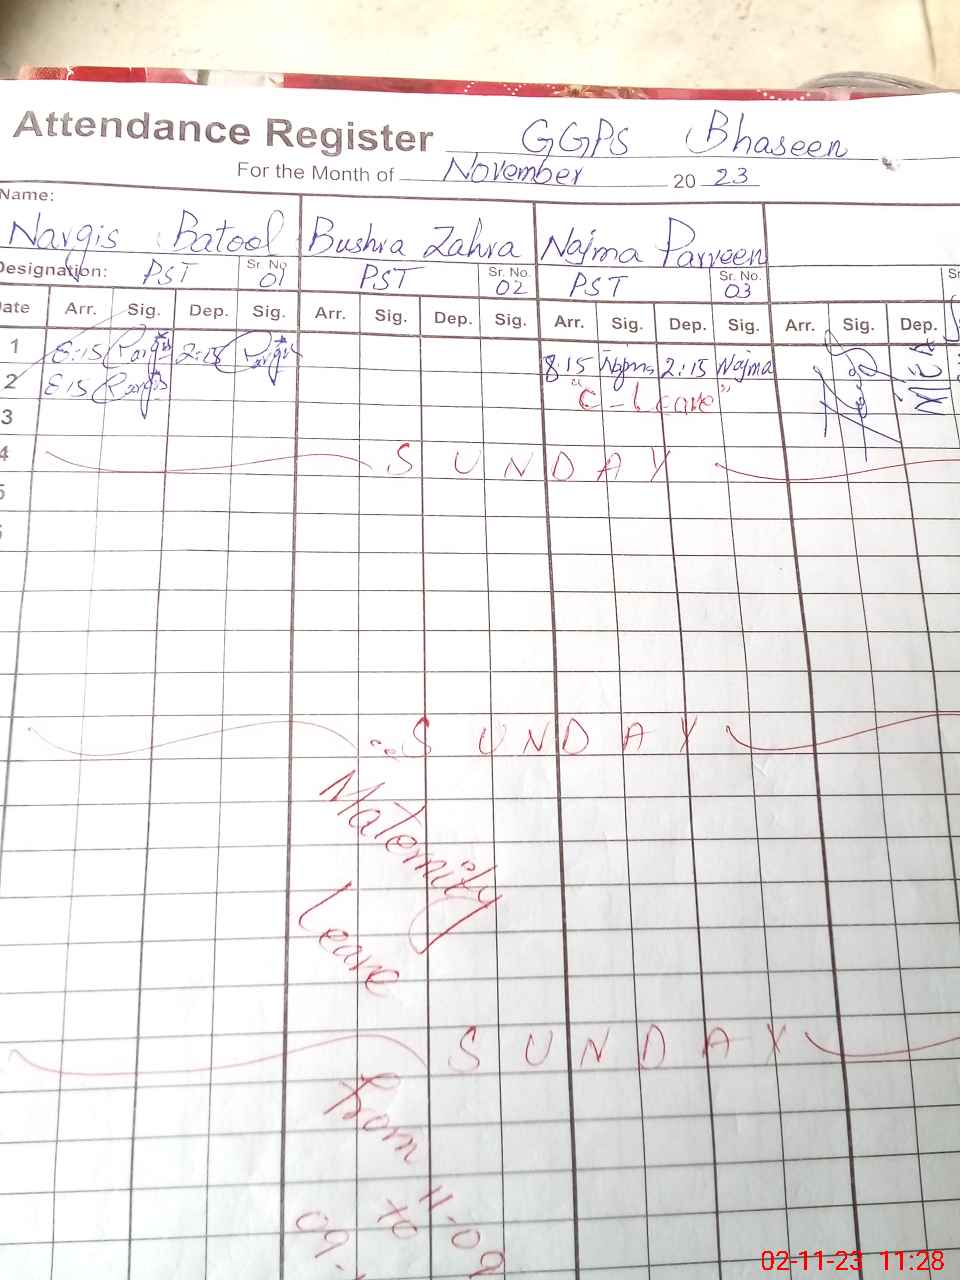 Attendance Register GGPS Bhaseen
For the Month of November 2023
Name:
Nargis Batool Bushra Zahra Najma Parveen
Designation: PST Sr. No 01 PST Sr. No. 02 PST Sr. No. 03 Sr
Date Arr. Sig. Dep. Sig. Arr. Sig. Dep. Sig. Arr. Sig. Dep. Sig. Arr. Sig. Dep.
1 8:15 Nargis 2:15 Nargis 8:15 Najma 2:15 Najma
2 8:15 Nargis "C-Leave"
3
4 SUNDAY
5
SUNDAY
Maternity
Leave
SUNDAY
from
to
02-11-23 11:28